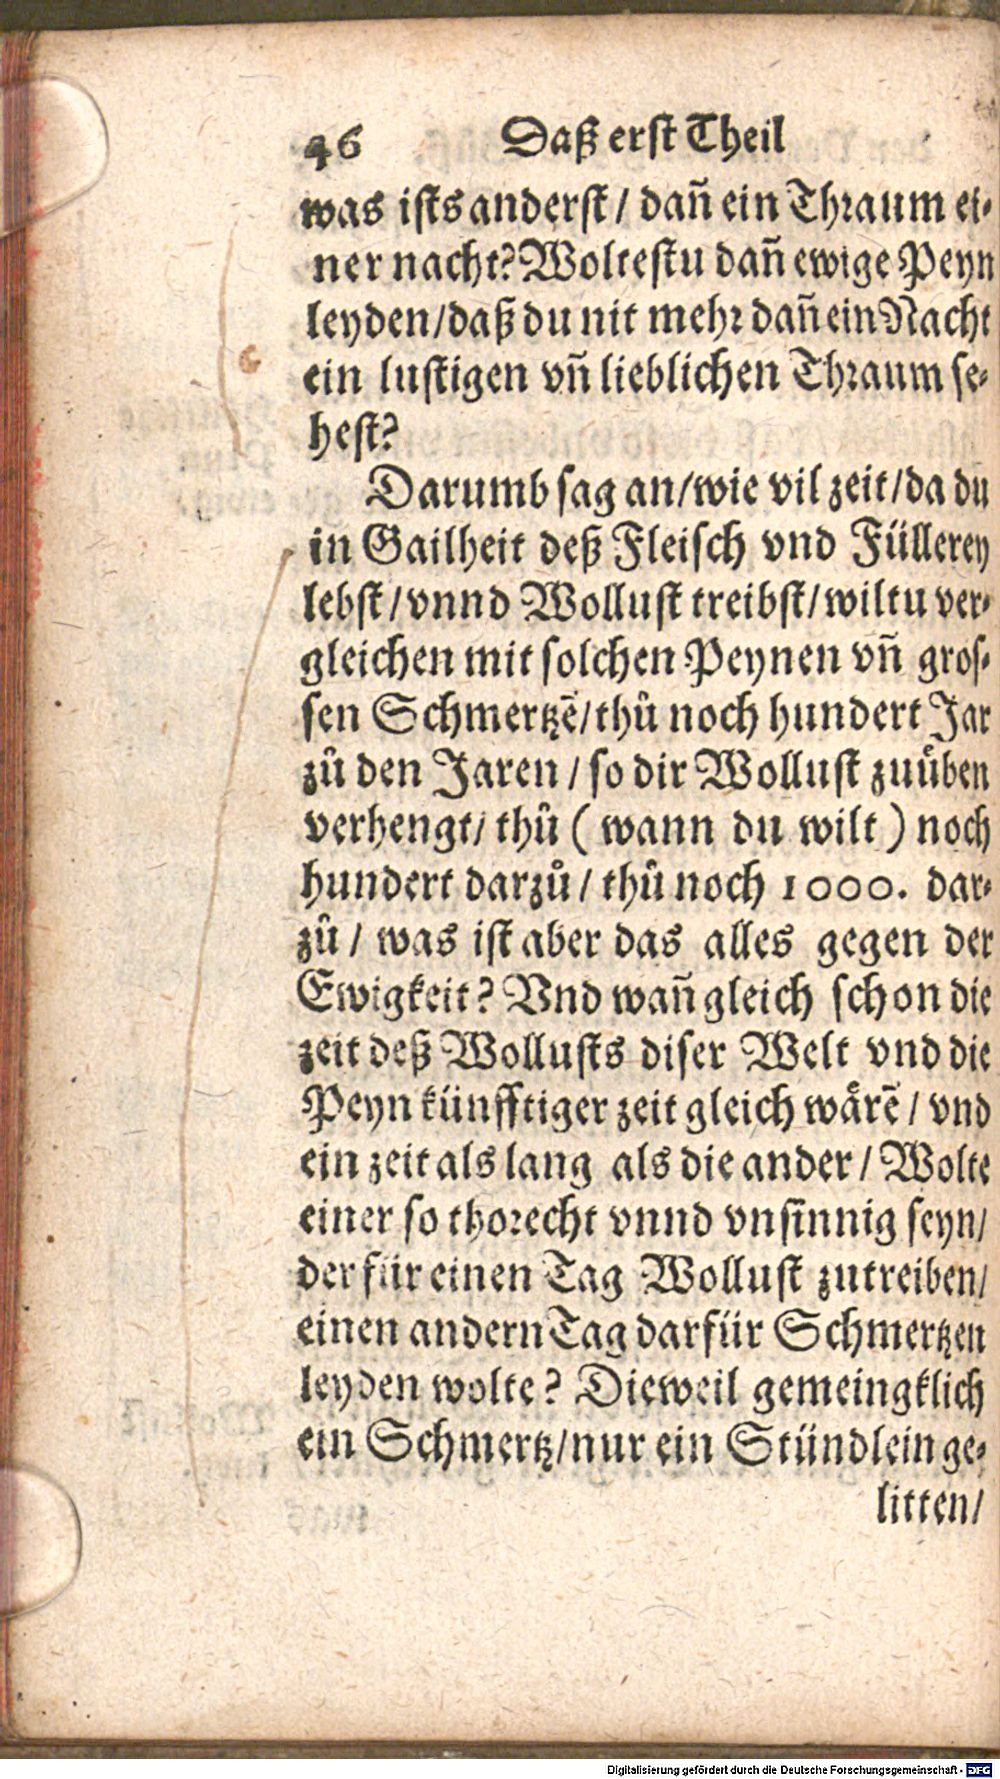 46 Daß erst Theil
was ists anderst / dañ ein Thraum ei-
ner nacht? Woltestu dañ ewige Peyn
leyden/daß du nit mehr dañ ein Nacht
ein lustigen vñ lieblichen Thraum se-
hest?
Darumb sag an/wie vil zeit/da du
in Gailheit deß Fleisch vnd Füllerey
lebst/vnnd Wollust treibst/wiltu ver-
gleichen mit solchen Peynen vñ gros-
sen Schmertzẽ/thů noch hundert Jar
zů den Jaren / so dir Wollust zuüben
verhengt/ thů ( wann du wilt ) noch
hundert darzů / thů noch 1000. dar-
zů / was ist aber das alles gegen der
Ewigkeit? Vnd wañ gleich schon die
zeit deß Wollusts diser Welt vnd die
Peyn künfftiger zeit gleich wärẽ / vnd
ein zeit als lang als die ander / Wolte
einer so thorecht vnnd vnsinnig seyn/
der für einen Tag Wollust zutreiben/
einen andern Tag darfür Schmertzen
leyden wolte? Dieweil gemeingklich
ein Schmertz/nur ein Stündlein ge-
litten/
Digitalisierung gefördert durch die Deutsche Forschungsgemeinschaft - DFG